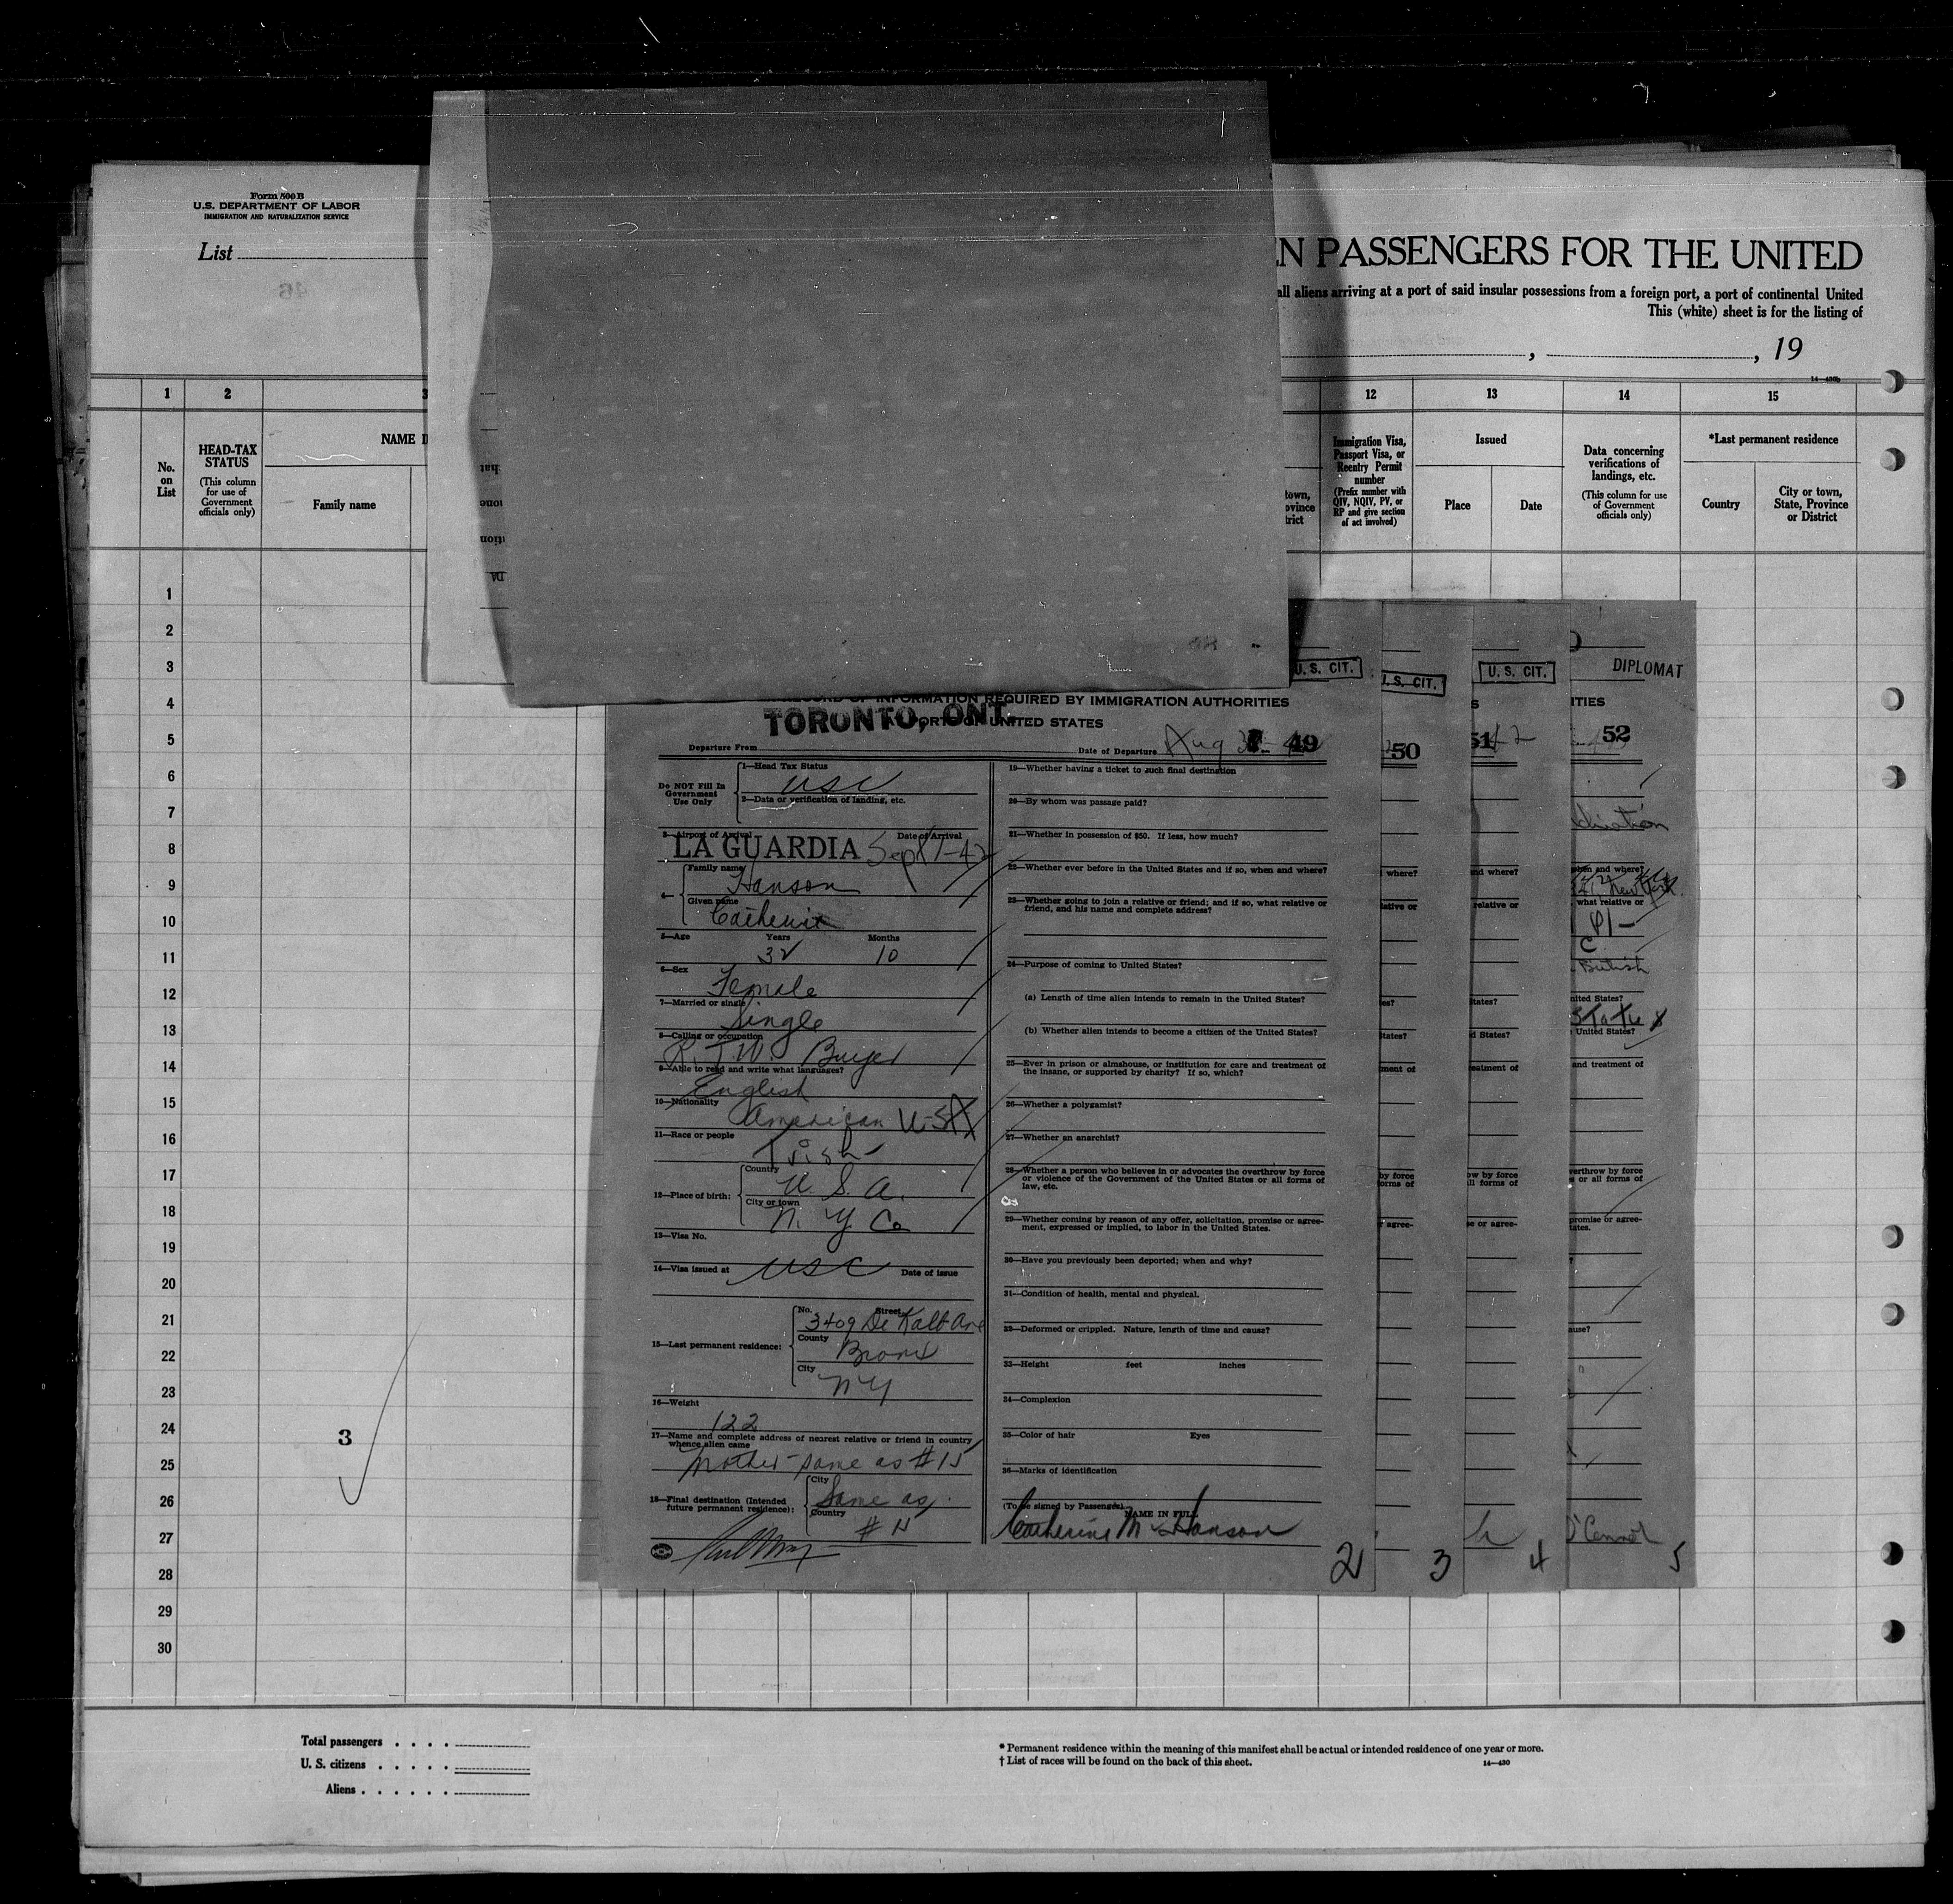 Form 500 B
U.S. DEPARTMENT OF LABOR
IMMIGRATION AND NATURALIZATION SERVICE
List
N PASSENGERS FOR THE UNITED
all aliens arriving at a port of said insular possessions from a foreign port, a port of continental United
This (white) sheet is for the listing of
, , 19
1 2 3 12 13 14 15
No. on List
HEAD-TAX STATUS
(This column for use of Government officials only)
NAME I
Family name
town,
ovince
trict
Immigration Visa, Passport Visa, or Reentry Permit number
(Prefix number with QIV, NQIV, PV, or RP and give section of act involved)
Issued
Place Date
Data concerning verifications of landings, etc.
(This column for use of Government officials only)
*Last permanent residence
Country
City or town, State, Province or District
1
2
3
4
5
6
7
8
9
10
11
12
13
14
15
16
17
18
19
20
21
22
23
24
25
26
27
28
29
30
3
U. S. CIT.
U. S. CIT.
U. S. CIT.
DIPLOMAT
RECORD OF INFORMATION REQUIRED BY IMMIGRATION AUTHORITIES
PORT OF UNITED STATES
TORONTO, ONT.
Departure From Date of Departure Aug 49
50
51
52
Do NOT Fill In Government Use Only
1—Head Tax Status
USC
2—Data or verification of landing, etc.
3—Airport of Arrival Date of Arrival
LA GUARDIA Sept 1-42
4— Family name
Hanson
Given name
Catherine
5—Age Years Months
32 10
6—Sex
Female
7—Married or single
Single
8—Calling or occupation
R.T.W. Buyer
9—Able to read and write what languages?
English
10—Nationality
American U-SA
11—Race or people
Irish
12—Place of birth: Country
U. S. A.
City or town
N. Y. Co
13—Visa No.
14—Visa issued at USC Date of issue
15—Last permanent residence:
No. Street
3409 De Kalb Ave
County
Bronx
City
NY
16—Weight
122
17—Name and complete address of nearest relative or friend in country whence alien came
Mother - same as #15
18—Final destination (Intended future permanent residence):
City
Same as
Country
19—Whether having a ticket to such final destination
20—By whom was passage paid?
21—Whether in possession of $50. If less, how much?
22—Whether ever before in the United States and if so, when and where?
23—Whether going to join a relative or friend; and if so, what relative or friend, and his name and complete address?
24—Purpose of coming to United States?
(a) Length of time alien intends to remain in the United States?
(b) Whether alien intends to become a citizen of the United States?
25—Ever in prison or almshouse, or institution for care and treatment of the insane, or supported by charity? If so, which?
26—Whether a polygamist?
27—Whether an anarchist?
28—Whether a person who believes in or advocates the overthrow by force or violence of the Government of the United States or all forms of law, etc.
29—Whether coming by reason of any offer, solicitation, promise or agreement, expressed or implied, to labor in the United States.
30—Have you previously been deported; when and why?
31—Condition of health, mental and physical.
32—Deformed or crippled. Nature, length of time and cause?
33—Height feet inches
34—Complexion
35—Color of hair Eyes
36—Marks of identification
(To be signed by Passenger)
NAME IN FULL
Catherine M Hanson
2
3
4
5
British
O'Connor
Total passengers
U. S. citizens
Aliens
* Permanent residence within the meaning of this manifest shall be actual or intended residence of one year or more.
† List of races will be found on the back of this sheet.
14—430